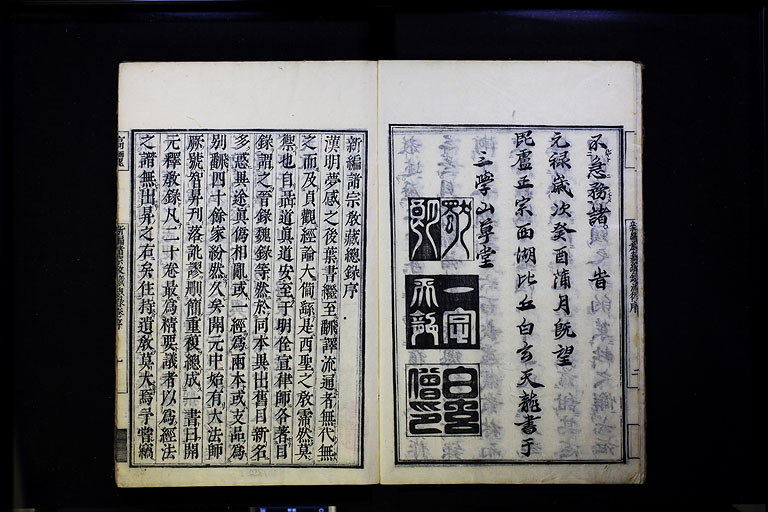 不急務諸。旹
元禄歳次癸酉蒲月既望
毘盧正宗西湖比丘白玄天龍書于
三學山草堂
新編諸宗教藏總錄序
漢明夢感之後葉書繼至翻譯流通者無代無
之而及貞觀經論大備繇是西聖之教霈然莫
禦也自聶道真道安至于明佺宣律師各著目
錄謂之晉錄魏錄等然於同本異出舊目新名
多惑異途真偽相亂或一經為兩本或支品為
別翻四十餘家紛然久矣開元中始有大法師
厥號智昇刊落訛謬刪簡重復總成一書曰開
元釋教錄凡二十卷最為精要議者以為經法
之譜無出昇之右矣住持遺教莫大焉予嘗竊